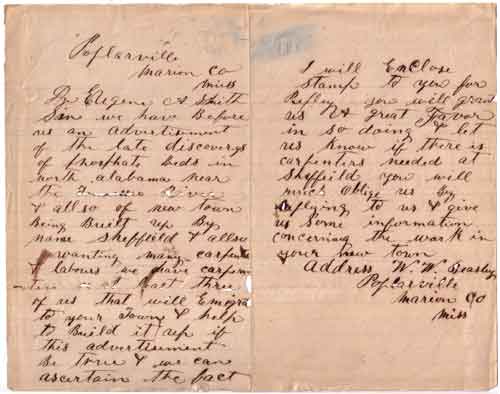 Poplarville
Marion Co
Miss
Dr Eugene A Smith
Sir we have Before
us an advertisement
of the late discoverys
of phosphate beds in
north alabama near
the
& allso of new town
Being Built up By
name Sheffield & allso
wanting many carpenters
& labours we have carpen
at least three
of us that will Emigra
to your Town & help
to Build it up if
this advertisement
Be true & we can
ascertain the fact
I will Enclose
Stamp to you for
Reply you will grant
us A great Favor
in so doing & let
us know if there is
carpenters needed at
Sheffield you will
much Oblige us By
replying to us & give
us some information
concerning the work in
your new town
Address W. W. Beasley
Poplarville
Marion Co
Miss